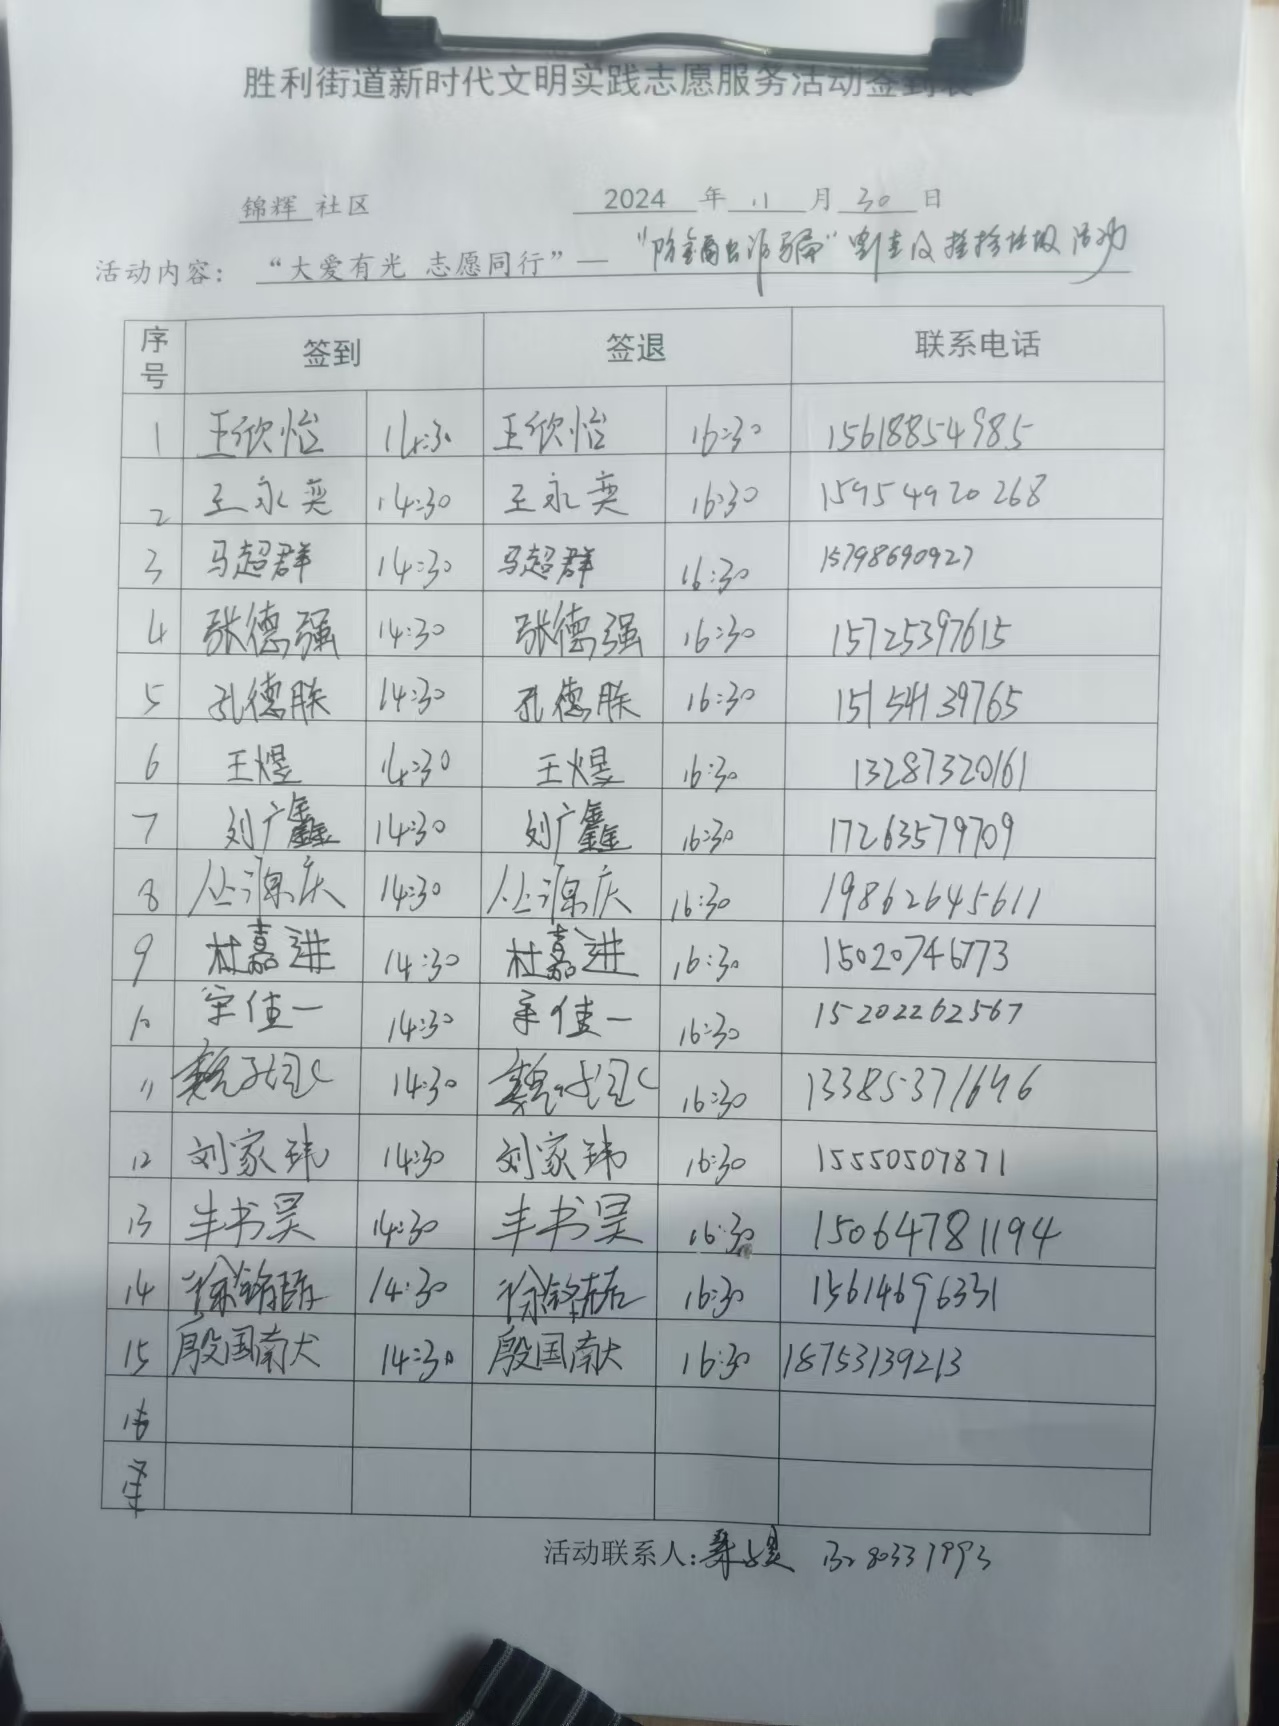 胜利街道新时代文明实践志愿服务活动签到表
锦辉 社区 2024 年 11 月 30 日
活动内容: “大爱有光 志愿同行”— “防 诈骗” 及 捡拾垃圾 活动
序号 签到 签退 联系电话
1 王欣怡 14:30 王欣怡 16:30 15618854985
2 王永奕 14:30 王永奕 16:30 15954920268
3 马超群 14:30 马超群 16:30 15798690927
4 张德强 14:30 张德强 16:30 15725397615
5 孔德朕 14:30 孔德朕 16:30 15154139765
6 王煜 14:30 王煜 16:30 13287320161
7 刘广鑫 14:30 刘广鑫 16:30 17263579709
8 丛源庆 14:30 丛源庆 16:30 19862645611
9 杜嘉进 14:30 杜嘉进 16:30 15020746773
10 宋佳一 14:30 宋佳一 16:30 15202262567
11 魏 14:30 魏 16:30 13385371646
12 刘家玮 14:30 刘家玮 16:30 15550507871
13 丰书昊 14:30 丰书昊 16:30 15064781194
14 徐 14:30 徐 16:30 15614696331
15 殷国献 14:30 殷国献 16:30 18753139213
16
活动联系人: 13280331993